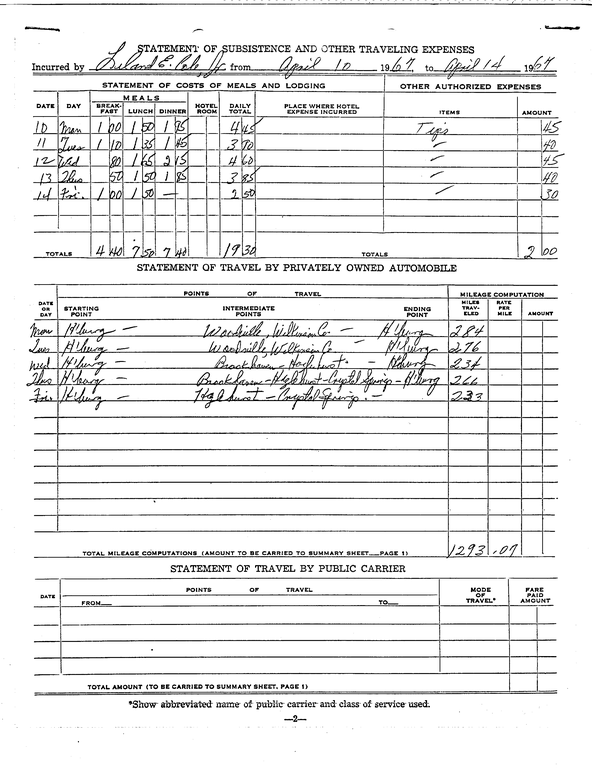 STATEMENT OF SUBSISTENCE AND OTHER TRAVELING EXPENSES
Incurred by Leland E. Cole Jr. from April 10 1967, to April 14 1967
STATEMENT OF COSTS OF MEALS AND LODGING OTHER AUTHORIZED EXPENSES
DATE DAY MEALS BREAK-FAST LUNCH DINNER HOTEL ROOM DAILY TOTAL PLACE WHERE HOTEL EXPENSE INCURRED ITEMS AMOUNT
10 Mon 1 00 1 50 1 95 4 45 Tips 45
11 Tues 1 10 1 35 1 45 3 90 " 40
12 Wed 80 1 65 2 15 4 60 " 45
13 Thus 50 1 50 1 85 3 85 " 40
14 Fri. 1 00 1 50 — 2 50 " 30
TOTALS 4 40 7 50 7 40 19 30 TOTALS 2 00
STATEMENT OF TRAVEL BY PRIVATELY OWNED AUTOMOBILE
DATE OR DAY POINTS OF TRAVEL MILEAGE COMPUTATION
STARTING POINT INTERMEDIATE POINTS ENDING POINT MILES TRAV-ELED RATE PER MILE AMOUNT
Mon H'burg — Woodville, Wilkinson Co — H'burg 284
Tues H'burg — Woodville, Wilkinson Co. — H'burg 276
Wed H'burg — Brookhaven - Hazlehurst - H'burg 234
Thus H'burg — Brookhaven - Hazlehurst - Crystal Springs - H'burg 266
Fri. H'burg — Hazlehurst - Crystal Springs. - 233
TOTAL MILEAGE COMPUTATIONS (AMOUNT TO BE CARRIED TO SUMMARY SHEET—PAGE 1) 1293 .07
STATEMENT OF TRAVEL BY PUBLIC CARRIER
DATE POINTS OF TRAVEL MODE OF TRAVEL* FARE PAID AMOUNT
FROM— TO—
TOTAL AMOUNT (TO BE CARRIED TO SUMMARY SHEET, PAGE 1)
*Show abbreviated name of public carrier and class of service used.
—2—